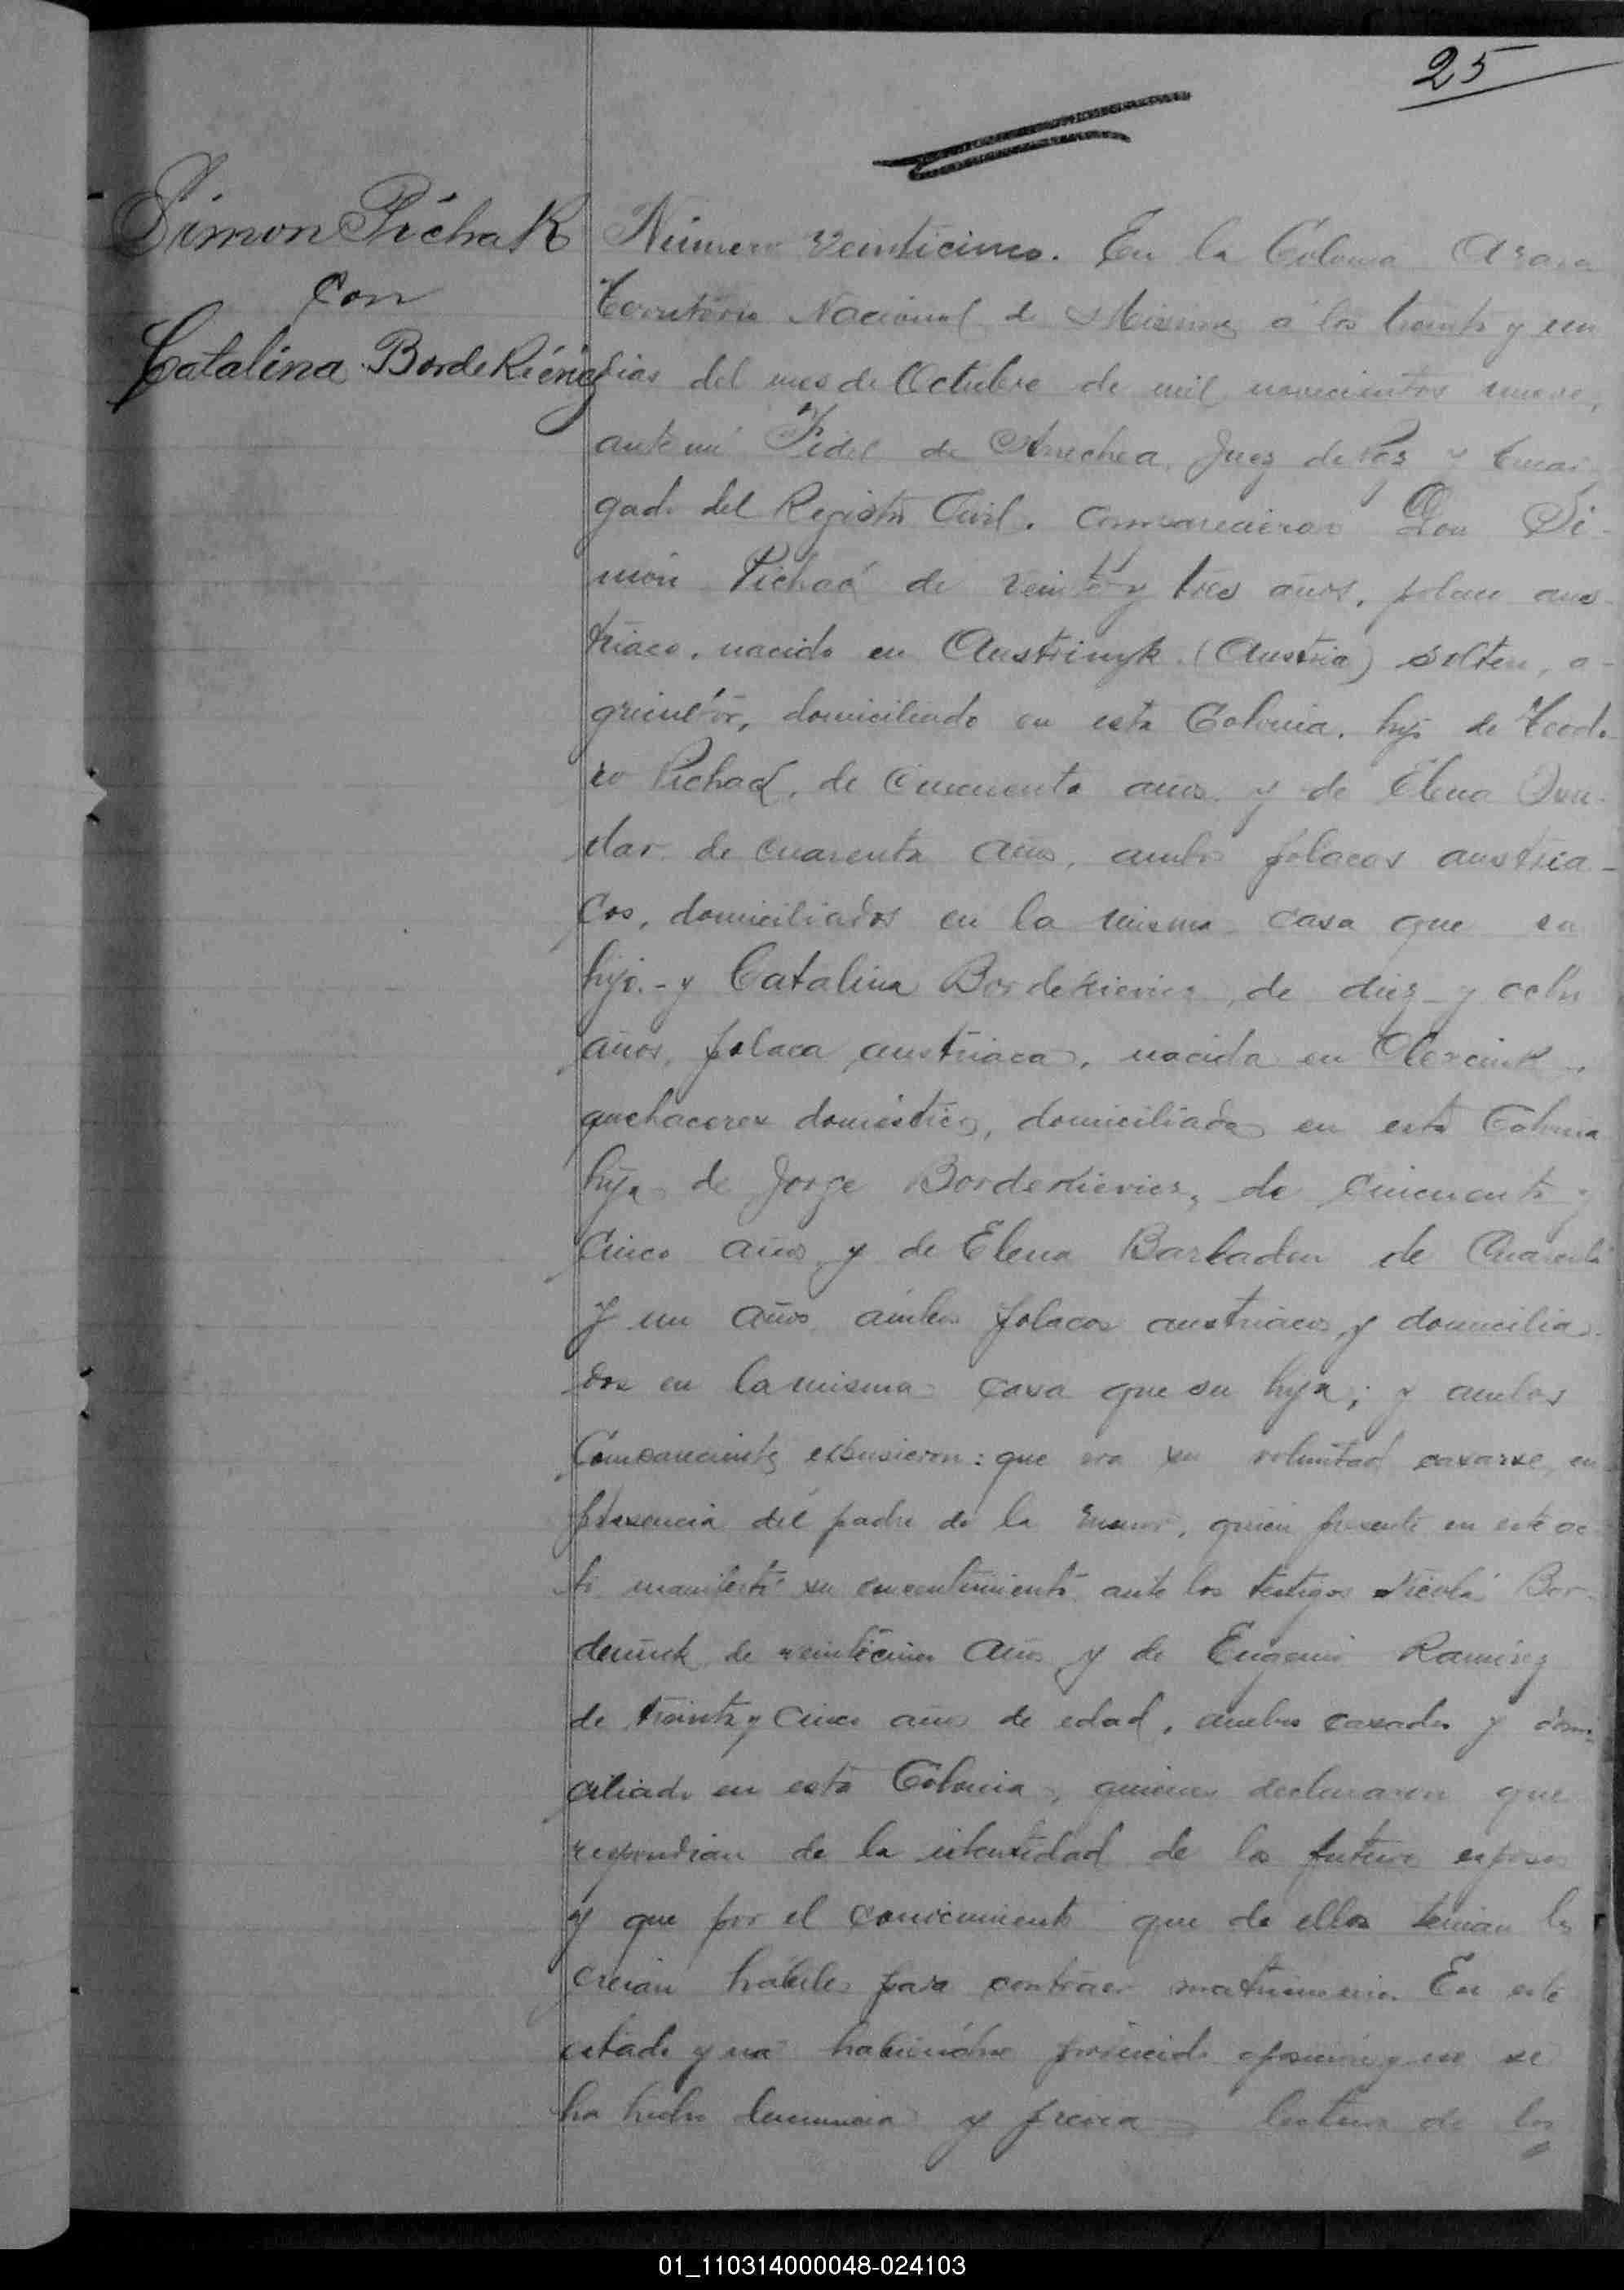 25
Simon Pichak
con
Catalina Bordekiénig
Número Veinticinco. En la Colonia Azara
Territorio Nacional de Misiones á los treinta y un
dias del mes de Octubre de mil novecientos nueve,
ante mi Fidel de Arrechea, Juez de Paz y Encar
gado del Registro Civil. Comparecieron Don Si-
món Pichac de veinte y tres años, polaco aus-
triaco, nacido en Austrinyk. (Austria) soltero, a-
gricultor, domiciliado en esta Colonia, hijo de Teodo-
ro Pichac, de Cincuenta años y de Elena
de cuarenta años, ambos polacos austria-
cos, domiciliados en la misma casa que su
hijo.- y Catalina Bordekievicz, de diez y ocho
años, polaca austriaca, nacida en
quehaceres domésticos, domiciliada en esta Colonia
hija de Jorge Bordekievicz, de cincuenta y
cinco años y de Elena Barbadon de Cuarenta
y un años, ambos polacos austriacos y domicilia-
dos en la misma casa que su hija; y ambos
Comparecientes expusieron: que era su voluntad casarse, en
presencia del padre de la menor, quien presente en este ac
to manifestó su consentimiento ante los testigos Nicolás Bor-
de veinticinco años y de Eugenio Ramírez
de treinta y cinco años de edad, ambos casados y domi
ciliado en esta Colonia, quienes declararon que
respondian de la identidad de los futuros esposos
y que por el conocimiento que de ellos tenian los
creian habiles para contraer matrimonio. En este
estado y no habiendose producido oposición y no se
ha hecho denuncia y previa lectura de los
01_110314000048-024103